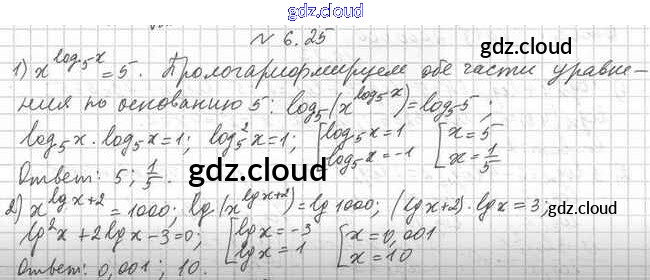 gdz.cloud
№ 6.25
gdz.cloud
1) x^{log₅x} = 5. Прологарифмируем обе части уравне-
ния по основанию 5: log₅(x^{log₅x}) = log₅5;
log₅x · log₅x = 1; log₅²x = 1; [log₅x = 1 log₅x = -1 [x = 5 x = 1/5
Ответ: 5; 1/5.
gdz.cloud
gdz.cloud
2) x^{lgx+2} = 1000; lg(x^{lgx+2}) = lg1000; (lgx+2)·lgx = 3;
lg²x + 2lgx - 3 = 0; [lgx = -3 lgx = 1 [x = 0,001 x = 10
Ответ: 0,001; 10.
gdz.cloud